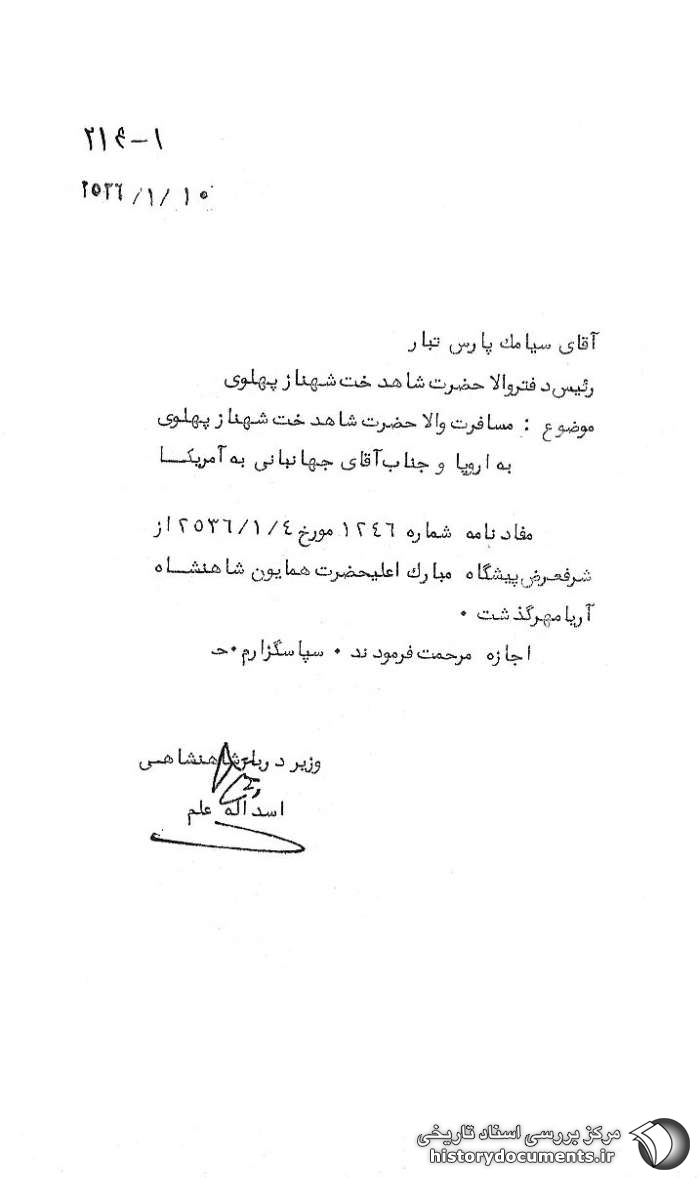 ۲۱۶-۱
۲۵۳۶/۱/۱۰
آقای سیامك پارس تبار
رئیس دفتر والا حضرت شاهدخت شهناز پهلوی
موضوع : مسافرت والا حضرت شاهدخت شهناز پهلوی
به اروپا و جناب آقای جهانبانی به آمریکا
مفاد نامه شماره ١٢٤٦ مورخ ٢٥٣٦/١/٤ از
شرفعرض پیشگاه مبارك اعلیحضرت همایون شاهنشاه
آریامهر گذشت ٠
اجازه مرحمت فرمودند ٠ سپاسگزارم ٠ح
وزیر دربار شاهنشاهی
اسداله علم
مرکز بررسی اسناد تاریخی
historydocuments.ir